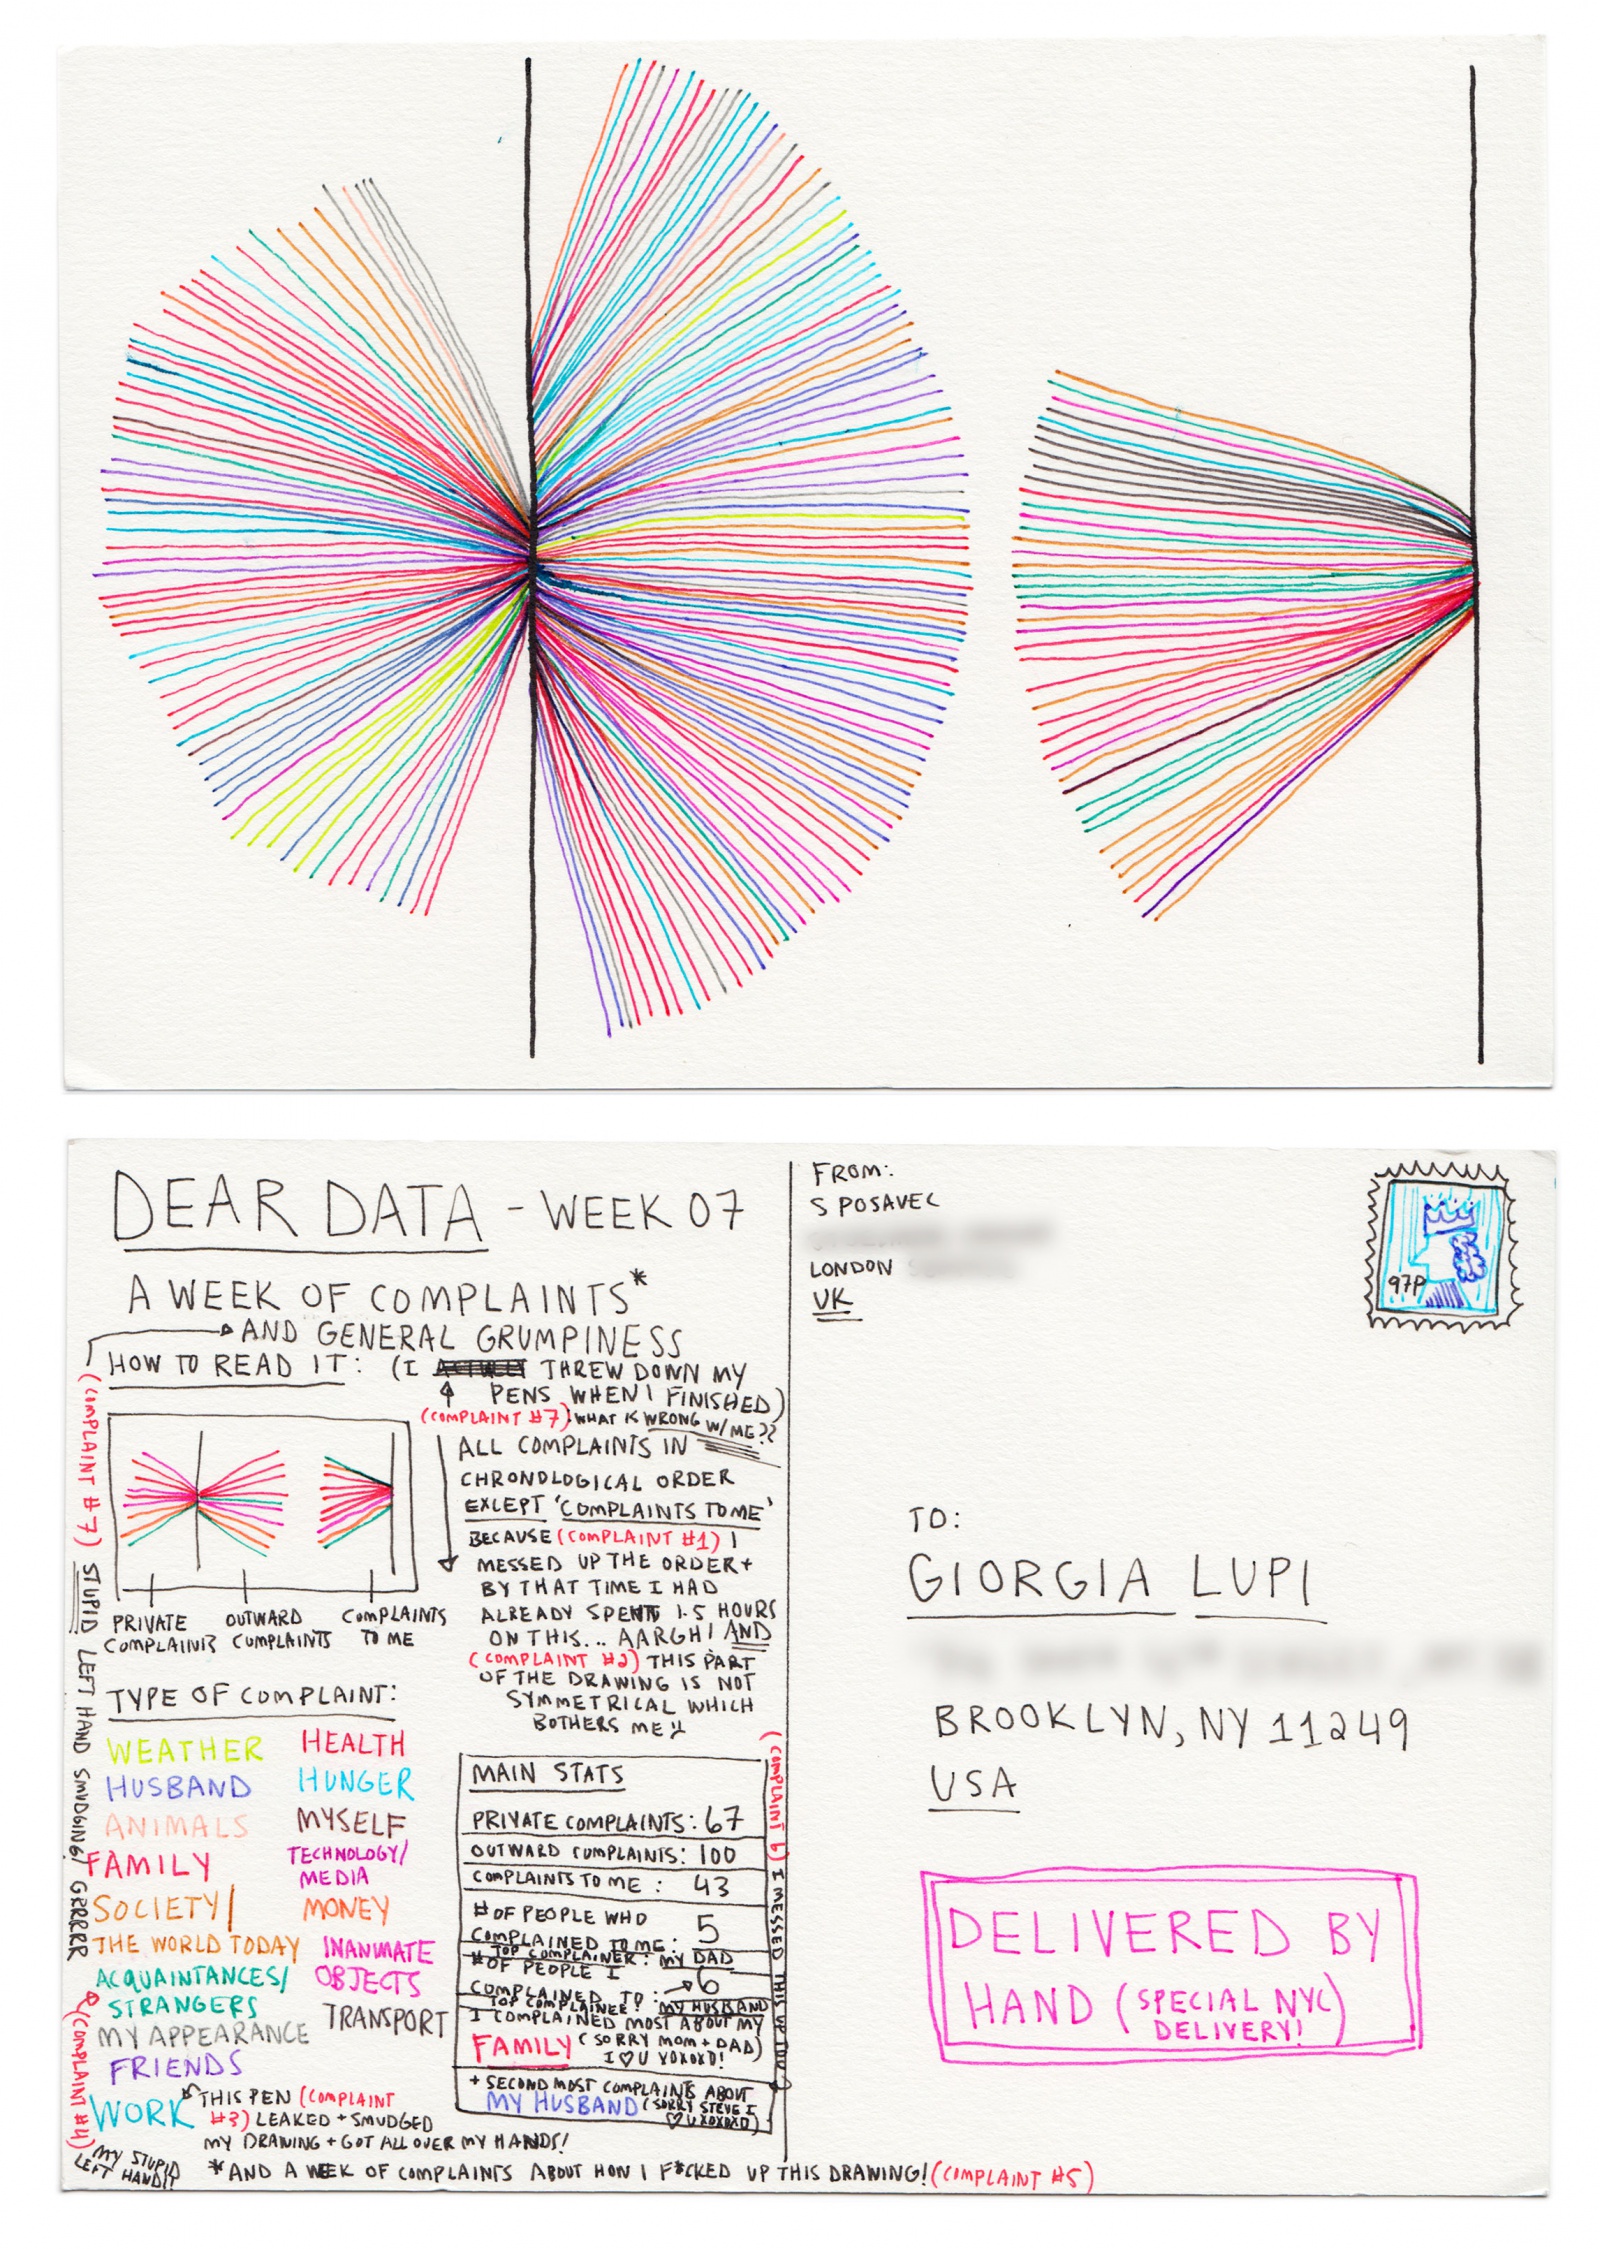 DEAR DATA - WEEK 07
A WEEK OF COMPLAINTS*
AND GENERAL GRUMPINESS
HOW TO READ IT: (I THREW DOWN MY
PENS WHEN I FINISHED)
(COMPLAINT #7) WHAT IS WRONG W/ ME??
(COMPLAINT #7) STUPID LEFT HAND SMUDGING! GRRRRR
PRIVATE COMPLAINTS
OUTWARD COMPLAINTS
COMPLAINTS TO ME
ALL COMPLAINTS IN
CHRONOLOGICAL ORDER
EXCEPT 'COMPLAINTS TO ME'
BECAUSE (COMPLAINT #1) I
MESSED UP THE ORDER +
BY THAT TIME I HAD
ALREADY SPENT 1.5 HOURS
ON THIS... AARGH! AND
(COMPLAINT #2) THIS PART
OF THE DRAWING IS NOT
SYMMETRICAL WHICH
BOTHERS ME!!
TYPE OF COMPLAINT:
WEATHER
HUSBAND
ANIMALS
FAMILY
SOCIETY/
THE WORLD TODAY
ACQUAINTANCES/
STRANGERS
MY APPEARANCE
FRIENDS
WORK
HEALTH
HUNGER
MYSELF
TECHNOLOGY/
MEDIA
MONEY
INANIMATE
OBJECTS
TRANSPORT
THIS PEN (COMPLAINT
#3) LEAKED + SMUDGED
MY DRAWING + GOT ALL OVER MY HANDS!
(COMPLAINT #4)
MY STUPID
LEFT HAND!!
*AND A WEEK OF COMPLAINTS ABOUT HOW I F*CKED UP THIS DRAWING! (COMPLAINT #5)
MAIN STATS
PRIVATE COMPLAINTS: 67
OUTWARD COMPLAINTS: 100
COMPLAINTS TO ME: 43
# OF PEOPLE WHO
COMPLAINED TO ME: 5
TOP COMPLAINER: MY DAD
# OF PEOPLE I
COMPLAINED TO: 6
TOP COMPLAINEE: MY HUSBAND
I COMPLAINED MOST ABOUT MY
FAMILY (SORRY MOM + DAD)
I ♡ U XOXOXO!
+ SECOND MOST COMPLAINTS ABOUT
MY HUSBAND (SORRY STEVE I
♡ U XOXOXO)
(COMPLAINT 6) I MESSED THIS UP TOO
FROM:
S POSAVEC
LONDON
UK
97P
TO:
GIORGIA LUPI
BROOKLYN, NY 11249
USA
DELIVERED BY
HAND (SPECIAL NYC
DELIVERY!)